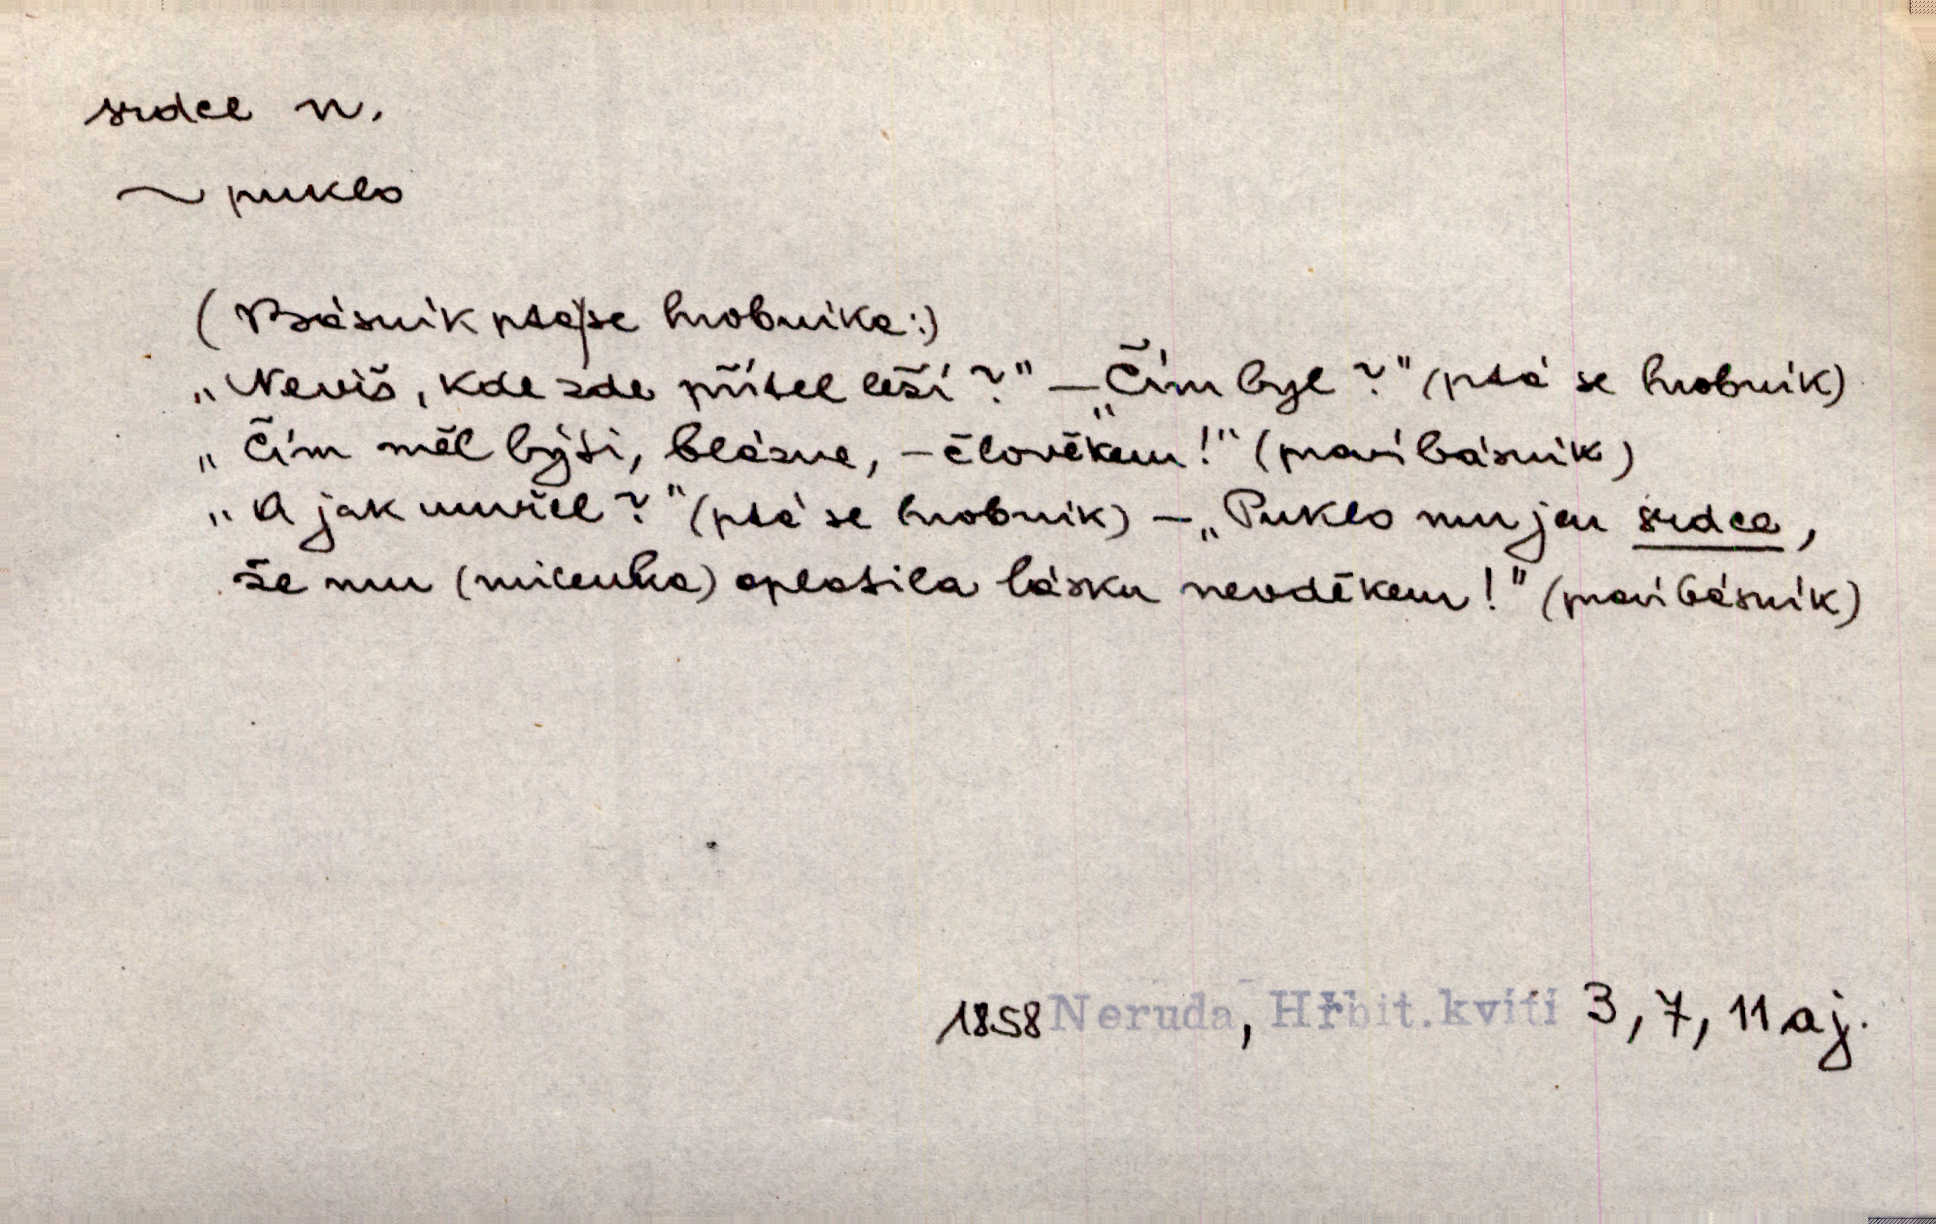 srdce n.
~ puklo
(Básník ptá|se hrobníka:)
„Nevíš, kde zde přítel leží?" – „Čím byl?" (ptá se hrobník)
„Čím měl býti, blázne, – člověkem!" (praví básník)
„A jak umřel?" (ptá se hrobník) – „Puklo mu jen srdce,
že mu (milenka) oplatila lásku nevděkem!" (praví básník)
1858 Neruda, Hřbit. kvítí 3, 7, 11 aj.